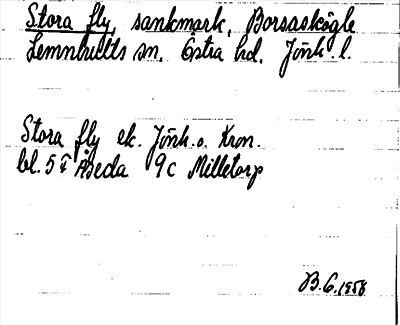 Stora fly, sankmark, Borsaskögle
Lemnhults sn. Östra hd. Jönk. l.
Stora fly ek. Jönk. o. Kron.
bl. 5 f Åseda 9c Milletorp
B.G. 1958